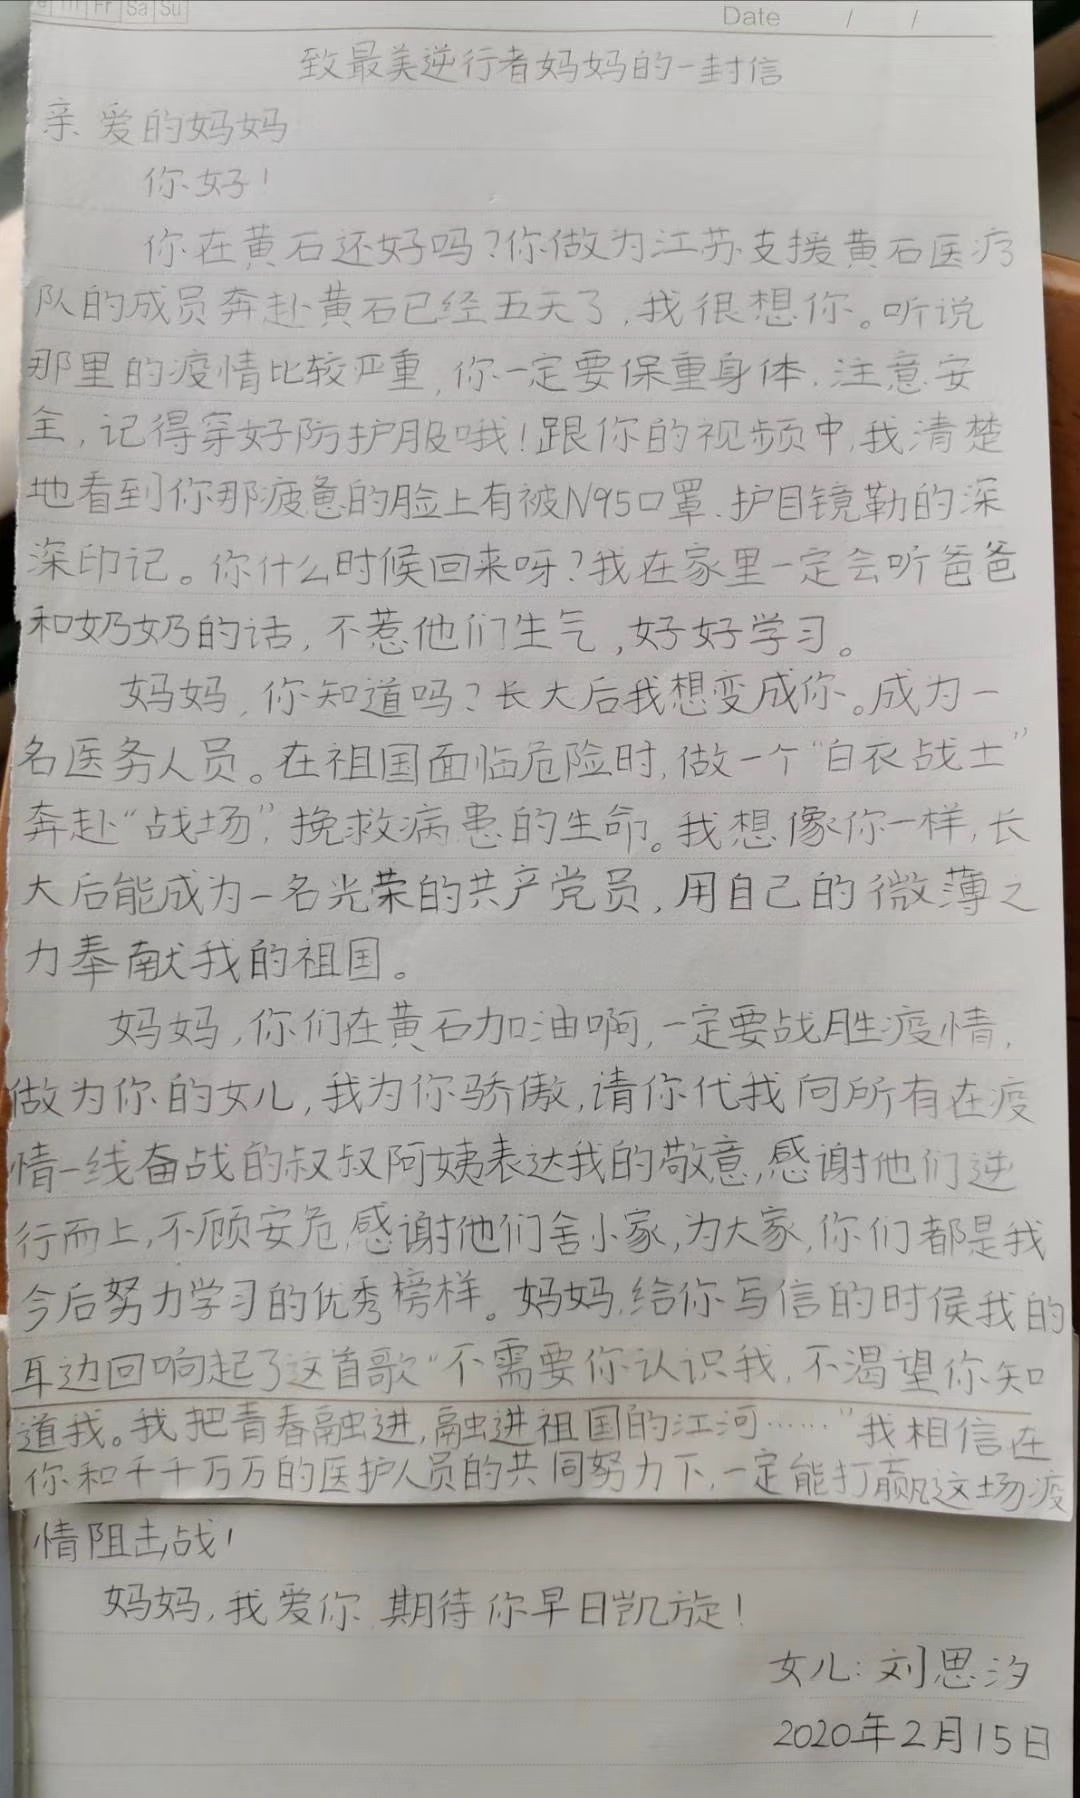 Th Fr Sa Su
Date / /
致最美逆行者妈妈的一封信
亲爱的妈妈
你好！
你在黄石还好吗？你做为江苏支援黄石医疗
队的成员奔赴黄石已经五天了，我很想你。听说
那里的疫情比较严重，你一定要保重身体，注意安
全，记得穿好防护服哦！跟你的视频中，我清楚
地看到你那疲惫的脸上有被N95口罩、护目镜勒的深
深印记。你什么时候回来呀？我在家里一定会听爸爸
和奶奶的话，不惹他们生气，好好学习。
妈妈，你知道吗？长大后我想变成你。成为一
名医务人员。在祖国面临危险时，做一个“白衣战士”
奔赴“战场”，挽救病患的生命。我想像你一样，长
大后能成为一名光荣的共产党员，用自己的微薄之
力奉献我的祖国。
妈妈，你们在黄石加油啊，一定要战胜疫情，
做为你的女儿，我为你骄傲，请你代我向所有在疫
情一线奋战的叔叔阿姨表达我的敬意，感谢他们逆
行而上，不顾安危，感谢他们舍小家，为大家，你们都是我
今后努力学习的优秀榜样。妈妈，给你写信的时候我的
耳边回响起了这首歌“不需要你认识我，不渴望你知
道我。我把青春融进，融进祖国的江河……”我相信在
你和千千万万的医护人员的共同努力下，一定能打赢这场疫
情阻击战！
妈妈，我爱你 期待你早日凯旋！
女儿：刘思汐
2020年2月15日